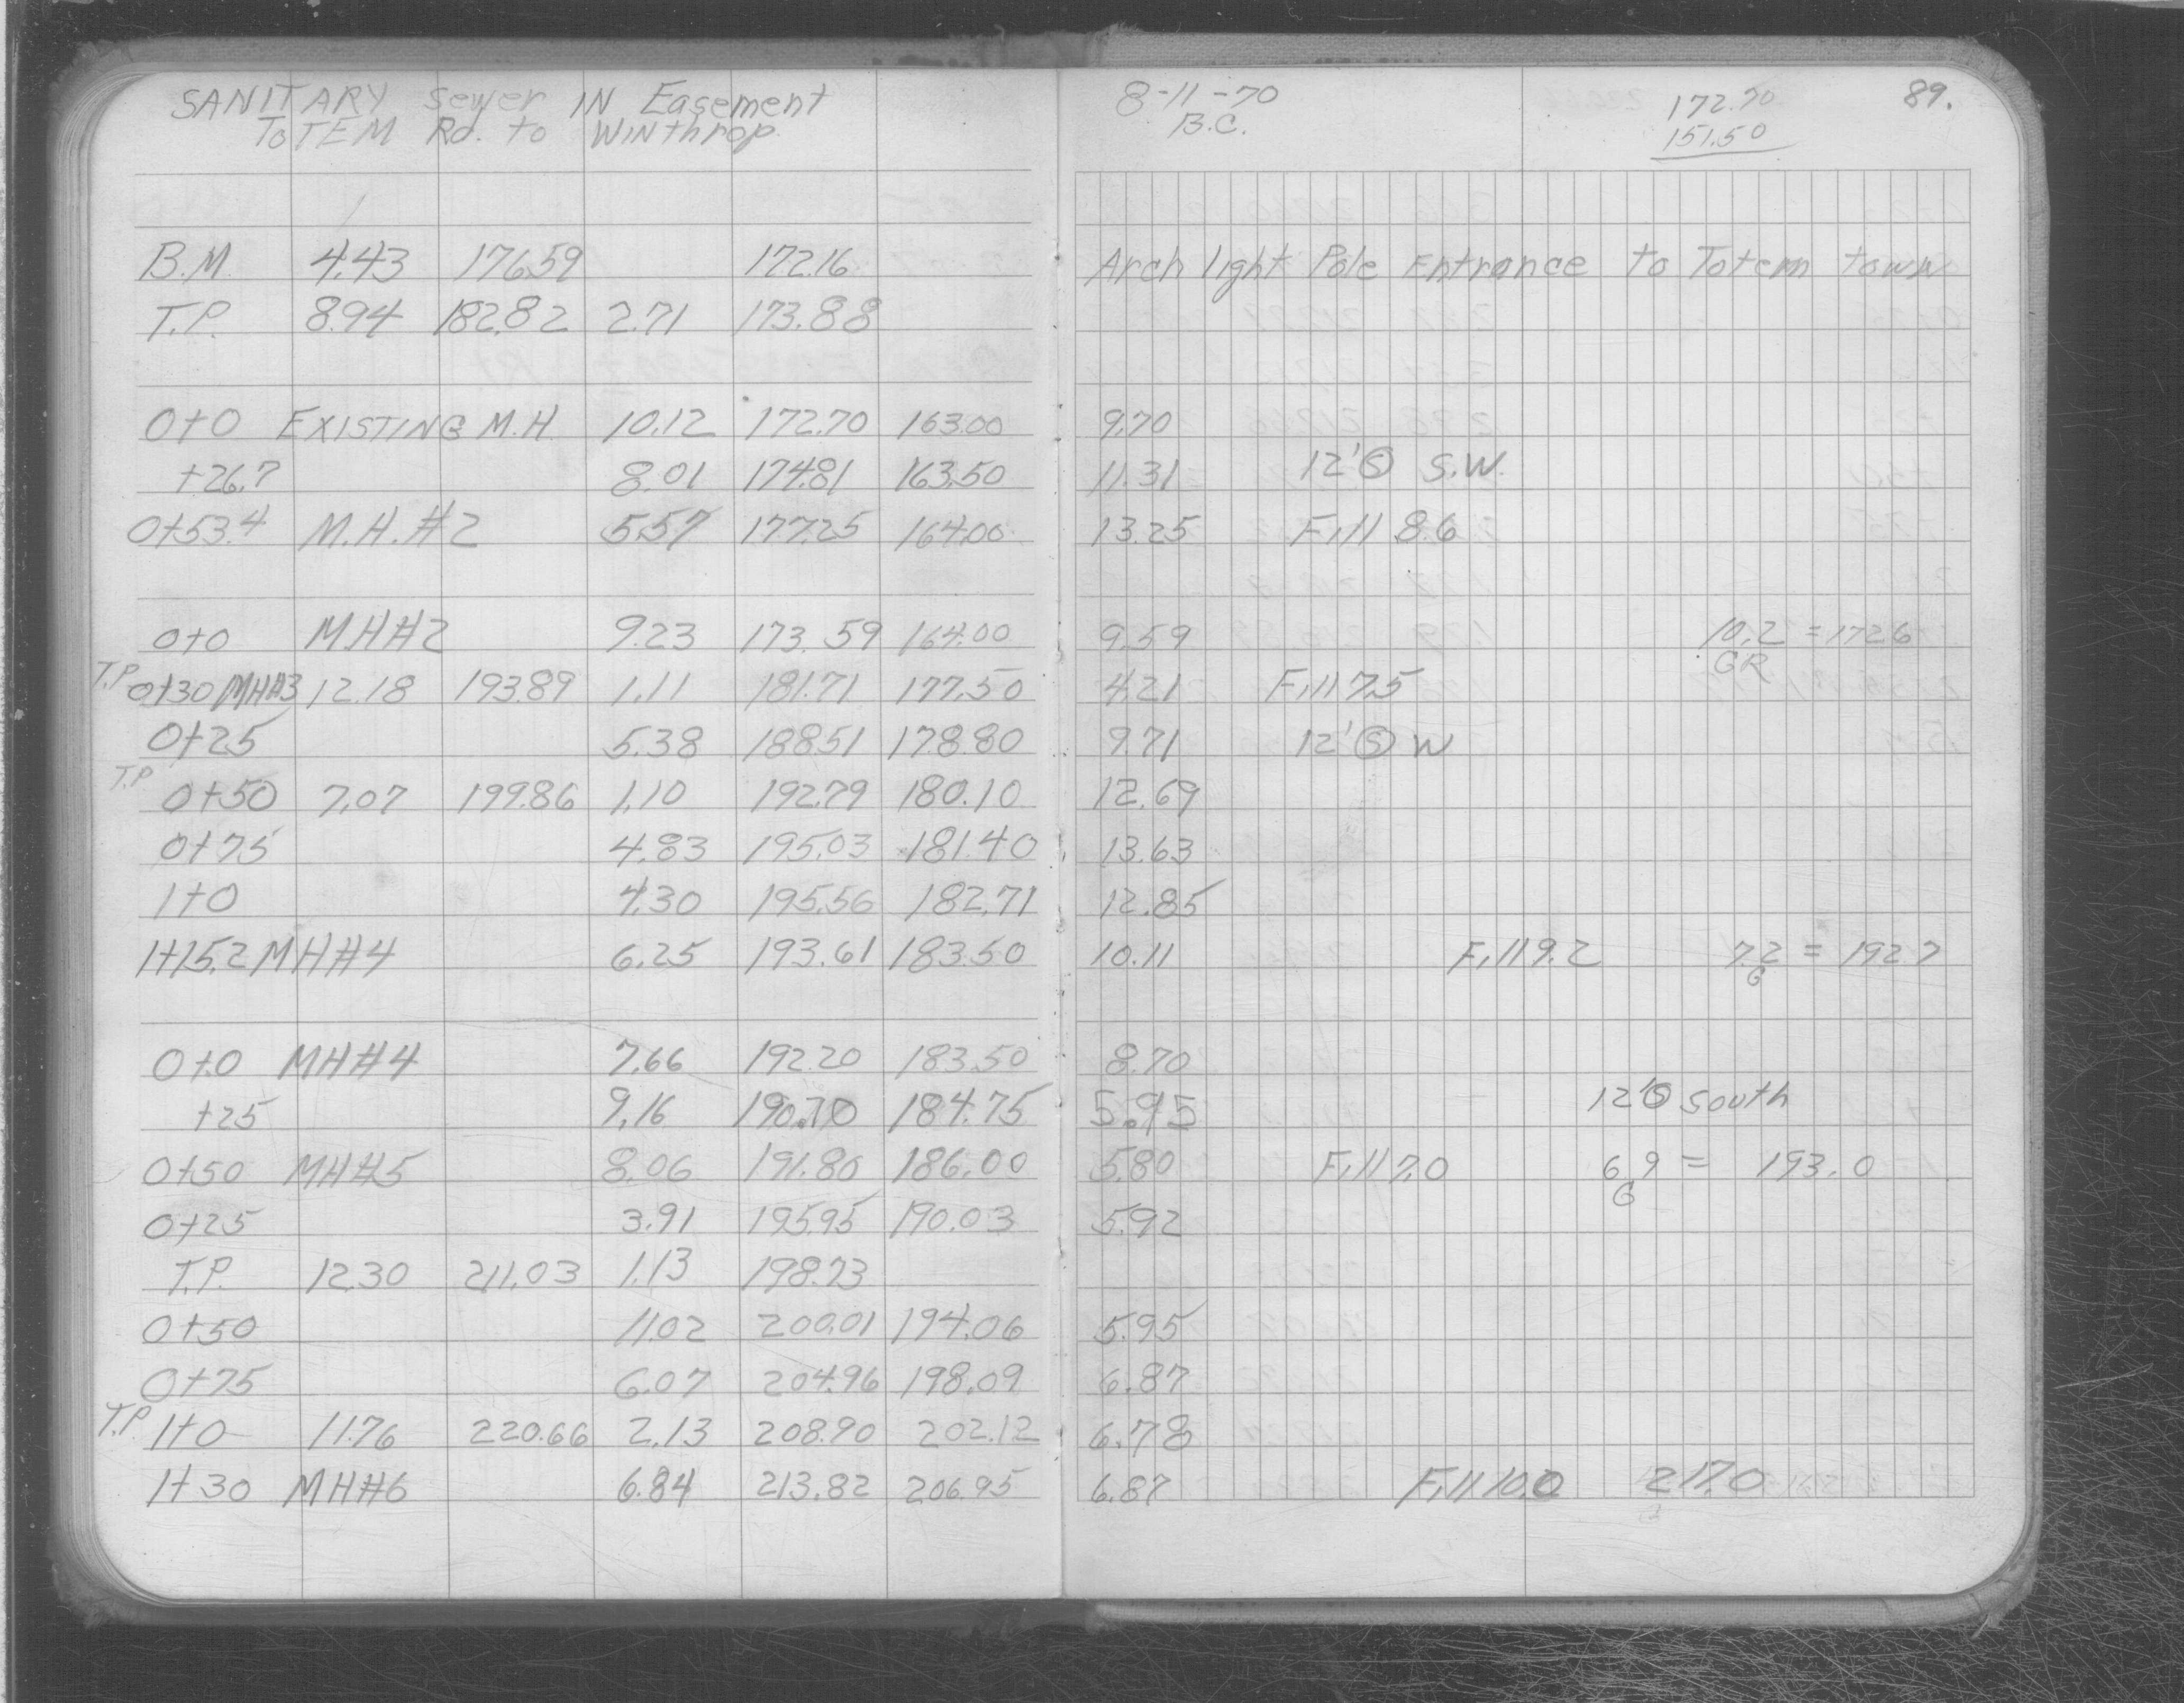 SANITARY Sewer IN Easement
ToTEM Rd. to WINthrop
8-11-70
B.C.
172.70
151.50
89.
B.M. 4.43 176.59 172.16 Arch light Pole Entrance to Totem town
T.P. 8.94 182.82 2.71 173.88
0+0 EXISTING M.H. 10.12 172.70 163.00 9.70
+26.7 8.01 174.81 163.50 11.31 12'Ⓢ S.W.
0+53.4 M.H.#2 5.57 177.25 164.00 13.25 Fill 8.6
0+0 MH#2 9.23 173.59 164.00 9.59 10.2 = 172.6
GR
T.P. 0+30 MH#3 12.18 193.89 1.11 181.71 177.50 4.21 Fill 7.5
0+25 5.38 188.51 178.80 9.71 12'Ⓢ W
T.P. 0+50 7.07 199.86 1.10 192.79 180.10 12.69
0+75 4.83 195.03 181.40 13.63
1+0 4.30 195.56 182.71 12.85
1+15.2 MH#4 6.25 193.61 183.50 10.11 Fill 9.2 7.2 = 192.7
G
0+0 MH#4 7.66 192.20 183.50 8.70
+25 9.16 190.70 184.75 5.95 12'Ⓢ South
0+50 MH#5 8.06 191.80 186.00 5.80 Fill 7.0 6.9 = 193.0
G
0+25 3.91 195.95 190.03 5.92
T.P. 12.30 211.03 1.13 198.73
0+50 11.02 200.01 194.06 5.95
0+75 6.07 204.96 198.09 6.87
T.P. 1+0 11.76 220.66 2.13 208.90 202.12 6.78
1+30 MH#6 6.84 213.82 206.95 6.87 Fill 10.0 217.0
G